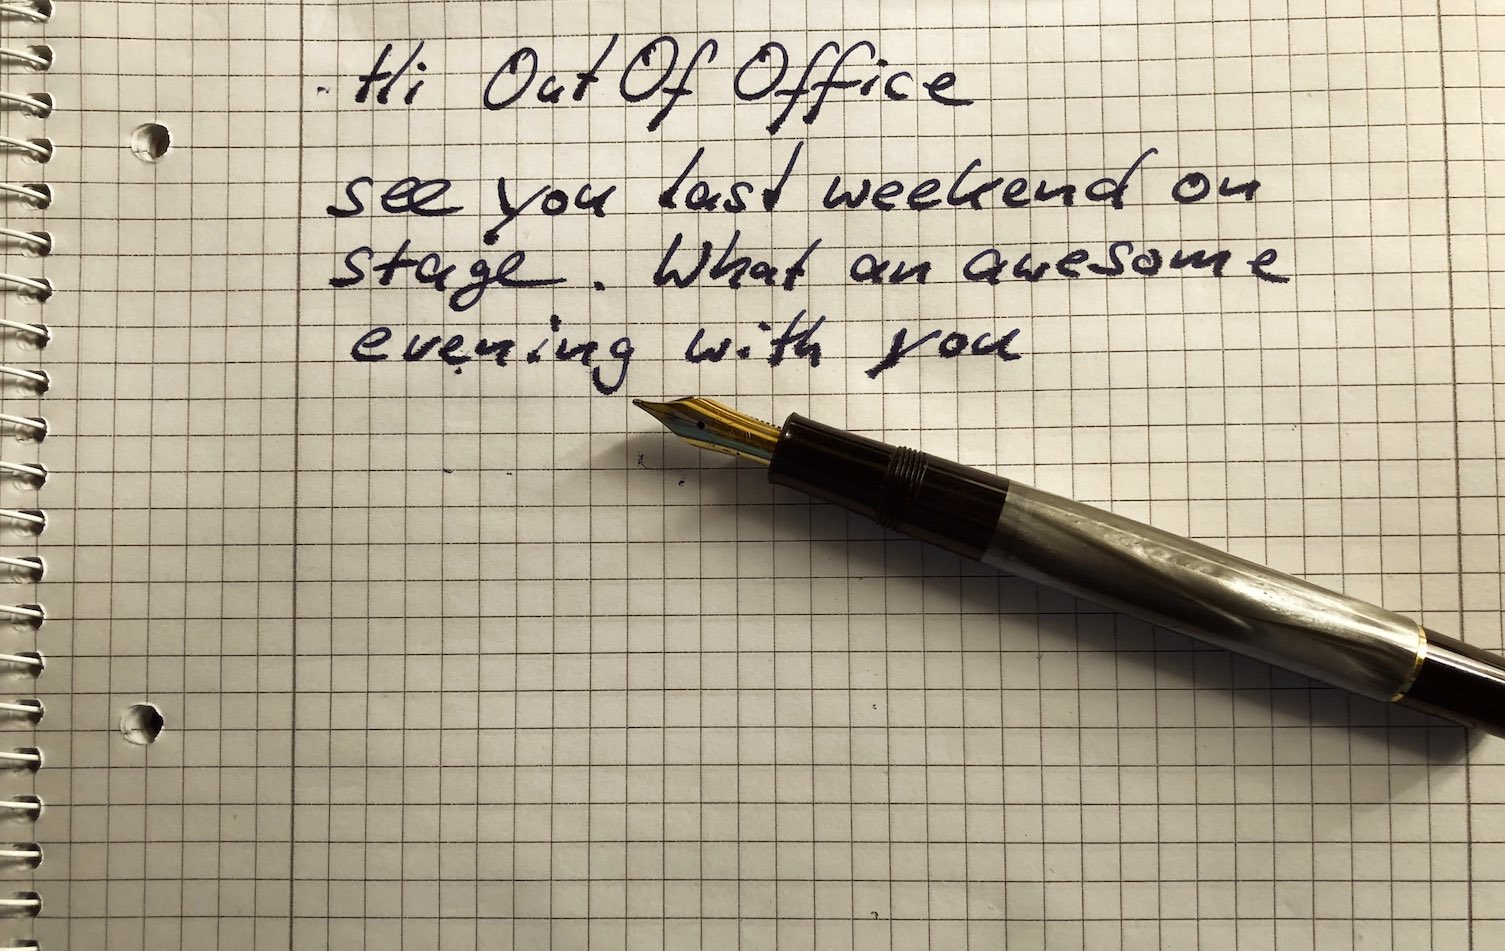 Hi OutOfOffice
see you last weekend on
stage. What an awesome
evening with you